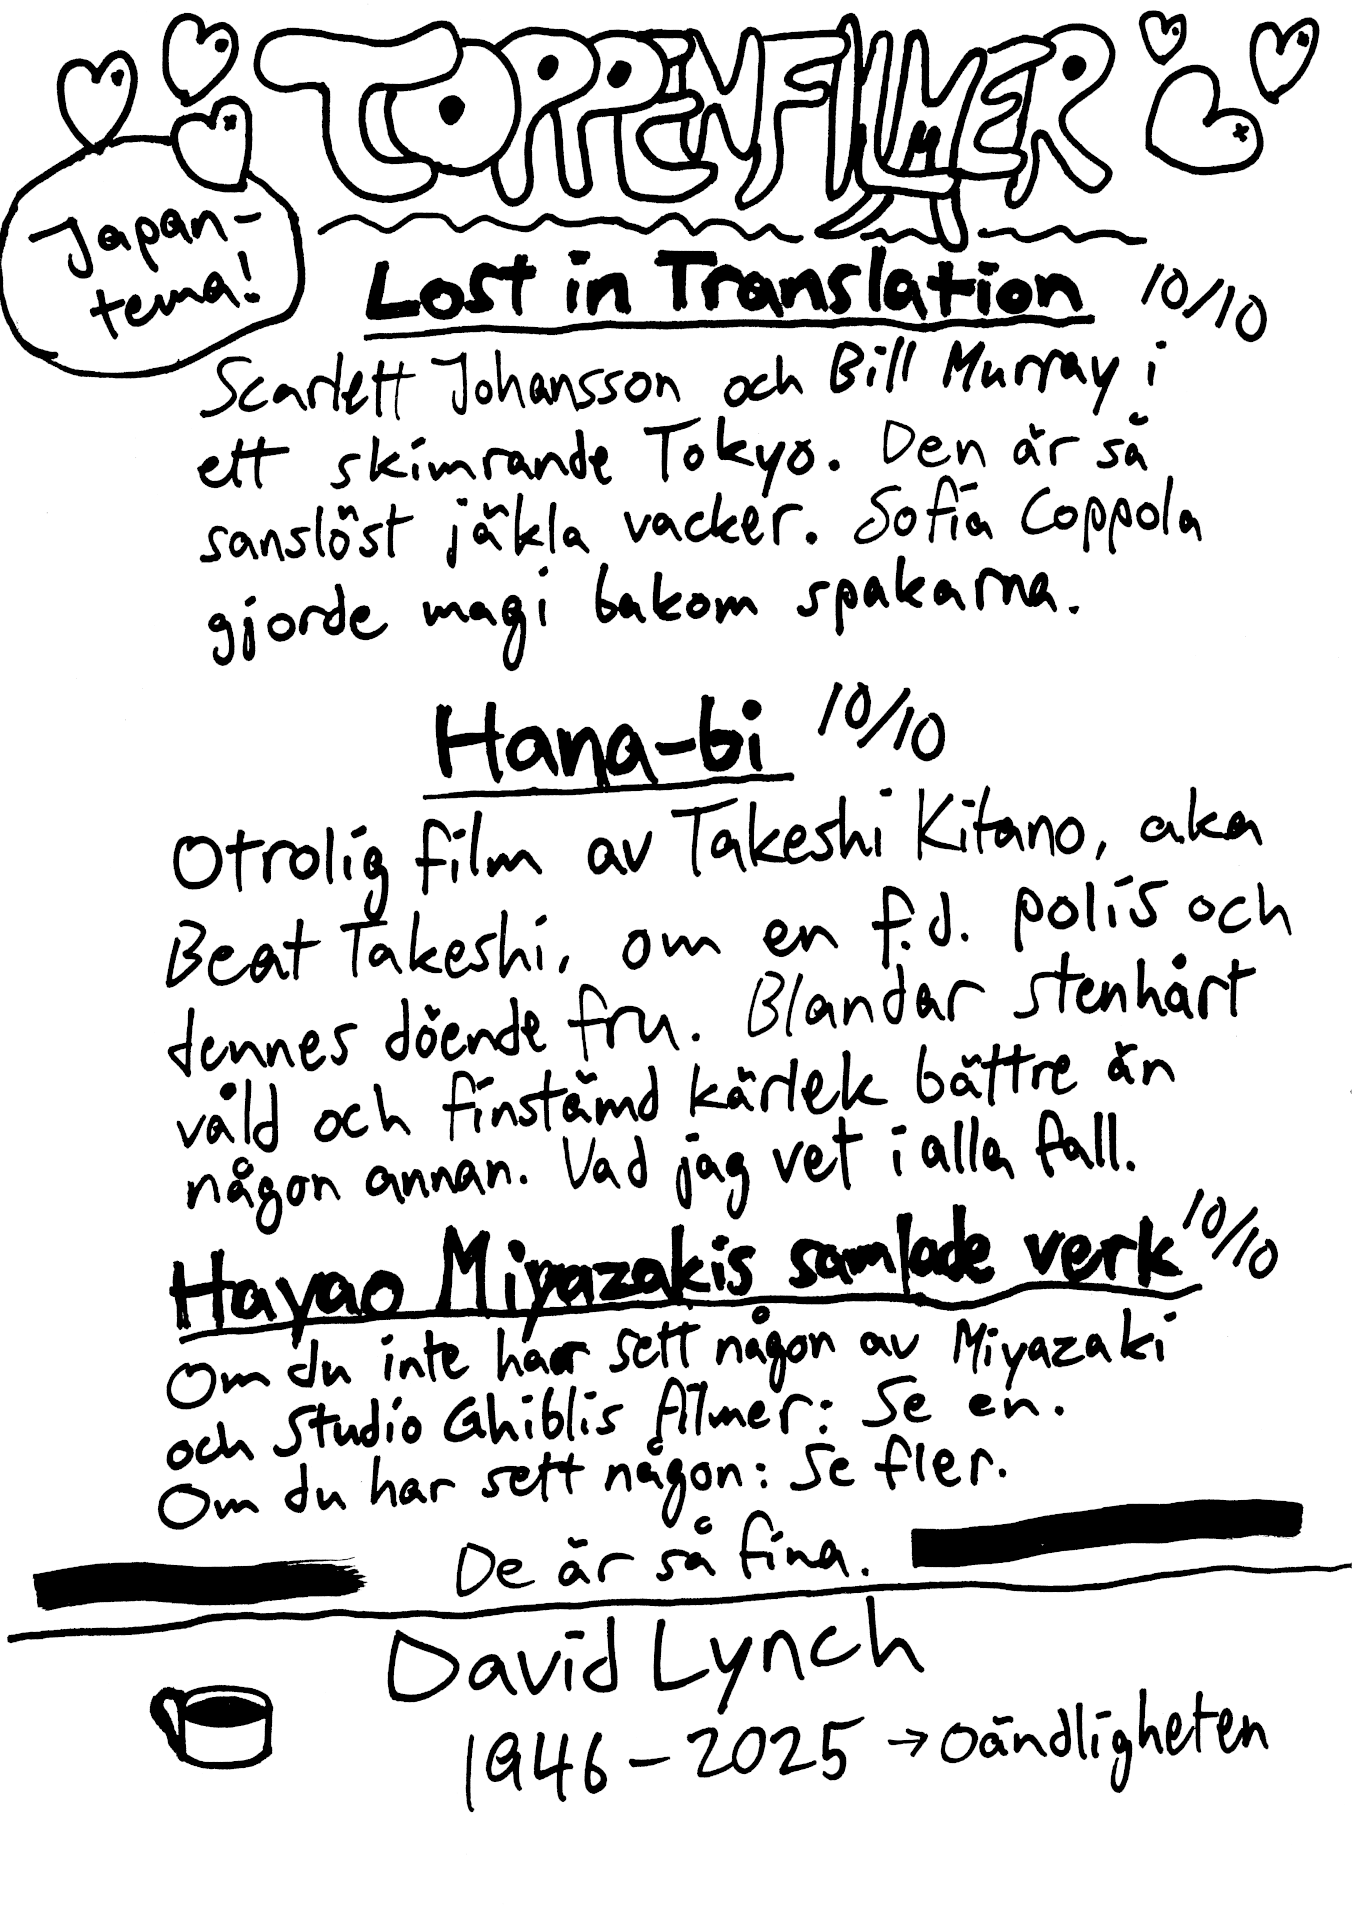 TOPPENFILMER
Japan-
tema!
Lost in Translation 10/10
Scarlett Johansson och Bill Murray i
ett skimrande Tokyo. Den är så
sanslöst jäkla vacker. Sofia Coppola
gjorde magi bakom spakarna.
Hana-bi 10/10
Otrolig film av Takeshi Kitano, aka
Beat Takeshi, om en f.d. polis och
dennes döende fru. Blandar stenhårt
våld och finstämd kärlek bättre än
någon annan. Vad jag vet i alla fall.
Hayao Miyazakis samlade verk 10/10
Om du inte har sett någon av Miyazaki
och Studio Ghiblis filmer: Se en.
Om du har sett någon: Se fler.
De är så fina.
David Lynch
1946-2025 → oändligheten